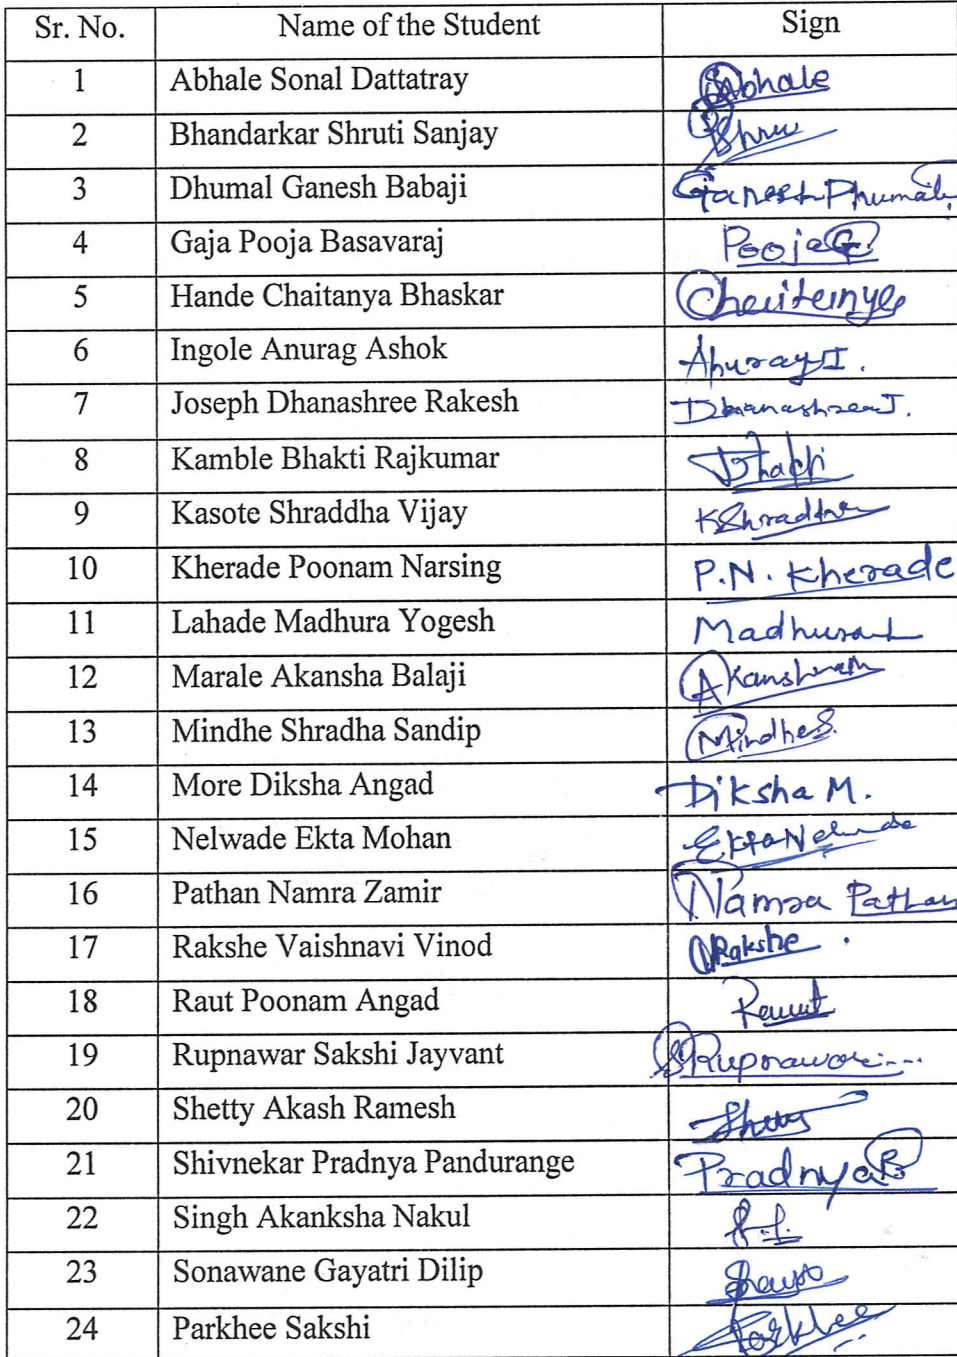 Sr. No. Name of the Student Sign
1 Abhale Sonal Dattatray Abhale
2 Bhandarkar Shruti Sanjay Shru
3 Dhumal Ganesh Babaji Ganesh Dhumal
4 Gaja Pooja Basavaraj Pooja G.
5 Hande Chaitanya Bhaskar Chaitanya
6 Ingole Anurag Ashok Anurag I.
7 Joseph Dhanashree Rakesh Dhanashree J.
8 Kamble Bhakti Rajkumar Bhakti
9 Kasote Shraddha Vijay K Shraddha
10 Kherade Poonam Narsing P.N. Kherade
11 Lahade Madhura Yogesh Madhura L
12 Marale Akansha Balaji Akansha M
13 Mindhe Shradha Sandip Mindhe S.
14 More Diksha Angad Diksha M.
15 Nelwade Ekta Mohan Ekta Nelwade
16 Pathan Namra Zamir Namra Pathan
17 Rakshe Vaishnavi Vinod Rakshe
18 Raut Poonam Angad Raut
19 Rupnawar Sakshi Jayvant SRupnawar
20 Shetty Akash Ramesh
21 Shivnekar Pradnya Pandurange Pradnya P.
22 Singh Akanksha Nakul
23 Sonawane Gayatri Dilip
24 Parkhee Sakshi Parkhee